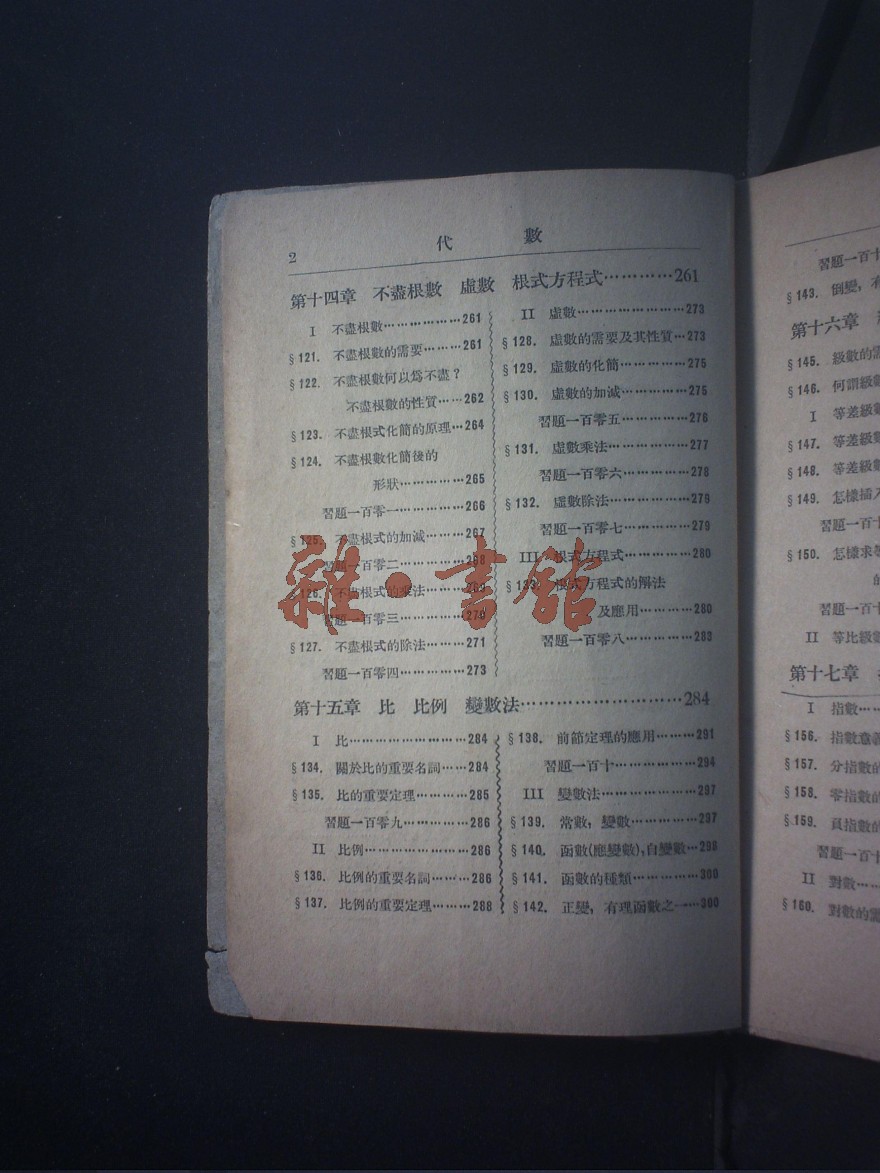 2
代 數
第十四章 不盡根數 虛數 根式方程式…………261
I 不盡根數………………261
§121. 不盡根數的需要………261
§122. 不盡根數何以爲不盡？
不盡根數的性質……262
§123. 不盡根式化簡的原理…264
§124. 不盡根數化簡後的
形狀……………265
習題一百零一……………266
§125. 不盡根式的加減………267
習題一百零二……………268
§126. 不盡根式的乘法………269
習題一百零三……………270
§127. 不盡根式的除法………271
習題一百零四……………273
II 虛數…………………273
§128. 虛數的需要及其性質…273
§129. 虛數的化簡……………275
§130. 虛數的加減……………275
習題一百零五……………276
§131. 虛數乘法………………277
習題一百零六……………278
§132. 虛數除法………………279
習題一百零七……………279
III 根式方程式……………280
§133. 根式方程式的解法
及應用…………280
習題一百零八……………283
雜·書館
第十五章 比 比例 變數法…………………………284
I 比………………………284
§134. 關於比的重要名詞……284
§135. 比的重要定理…………285
習題一百零九……………286
II 比例……………………286
§136. 比例的重要名詞………286
§137. 比例的重要定理………288
§138. 前節定理的應用………291
習題一百十………………294
III 變數法…………………297
§139. 常數，變數……………297
§140. 函數(應變數)，自變數…298
§141. 函數的種類……………300
§142. 正變，有理函數之一……300
習題一百十
§143. 倒變，有
第十六章
§145. 級數的需
§146. 何謂級數
I 等差級
§147. 等差級數
§148. 等差級數
§149. 怎樣插入
習題一百十
§150. 怎樣求等
的
習題一百十
II 等比級數
第十七章
I 指數……
§156. 指數意義
§157. 分指數的
§158. 零指數的
§159. 負指數的
習題一百十
II 對數……
§160. 對數的需